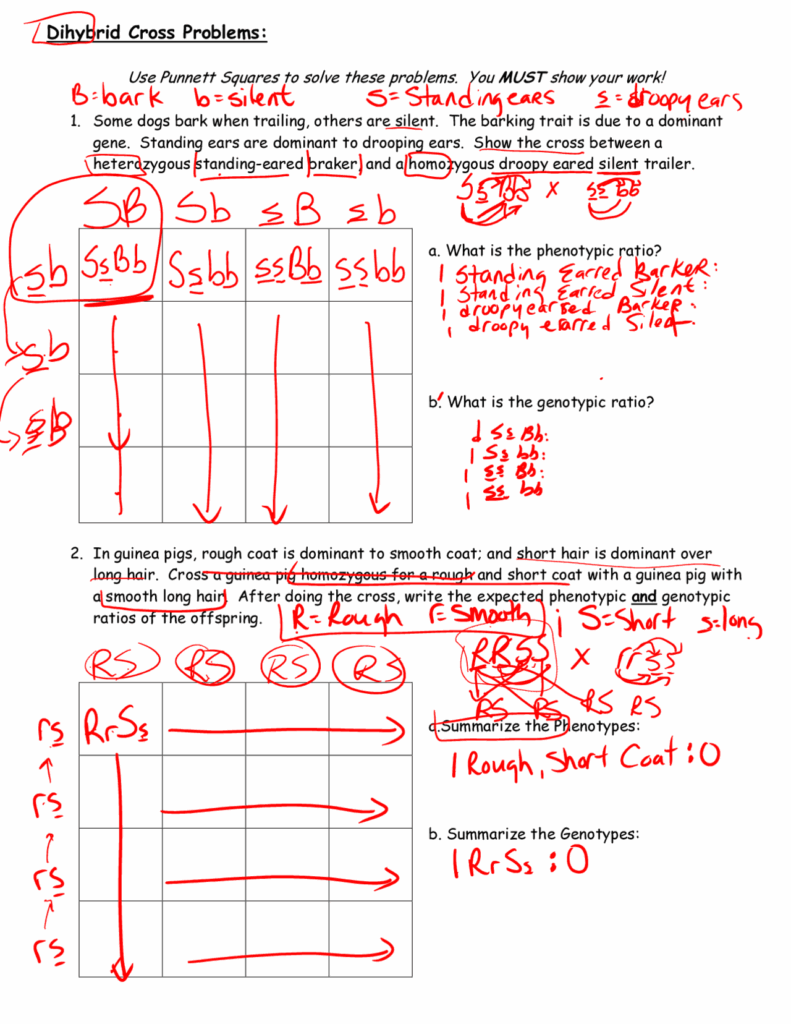 Dihybrid Cross Problems:
Use Punnett Squares to solve these problems. You MUST show your work!
B=bark b=silent S=Standing ears s=droopy ears
1. Some dogs bark when trailing, others are silent. The barking trait is due to a dominant
gene. Standing ears are dominant to drooping ears. Show the cross between a
heterozygous standing-eared braker, and a homozygous droopy eared silent trailer.
SsBb x ssbb
SB Sb sB sb
sb SsBb Ssbb ssBb ssbb
sb
sb
a. What is the phenotypic ratio?
1 Standing Earred Barker:
1 Standing Earred Silent:
1 droopy earred Barker:
1 droopy erarred Silent.
b. What is the genotypic ratio?
1 SsBb:
1 Ss bb:
1 ss Bb:
1 ss bb
2. In guinea pigs, rough coat is dominant to smooth coat; and short hair is dominant over
long hair. Cross a guinea pig homozygous for a rough and short coat with a guinea pig with
a smooth long hair. After doing the cross, write the expected phenotypic and genotypic
ratios of the offspring.
R=Rough r=Smooth ; S=Short s=long
RRSS x rrss
RS RS RS RS
RS RS RS RS
rs RrSs
rs
rs
rs
a.Summarize the Phenotypes:
1 Rough, Short Coat : 0
b. Summarize the Genotypes:
1 RrSs : 0